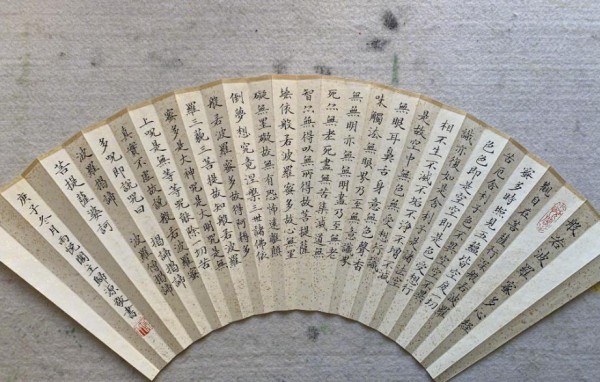 般若波羅蜜多心經
觀自在菩薩行深般若波羅
蜜多時照見五蘊皆空度一切
苦厄舍利子色不異空空不異
色色即是空空即是色受想行
識亦復如是舍利子是諸法空
相不生不滅不垢不淨不增不減
是故空中無色無受想行識
無眼耳鼻舌身意無色聲香
味觸法無眼界乃至無意識界
無無明亦無無明盡乃至無老
死亦無老死盡無苦集滅道無
智亦無得以無所得故菩提薩
埵依般若波羅蜜多故心無罣
礙無罣礙故無有恐怖遠離顛
倒夢想究竟涅槃三世諸佛依
般若波羅蜜多故得阿耨多
羅三藐三菩提故知般若波羅
蜜多是大神咒是大明咒是無
上咒是無等等咒能除一切苦
真實不虛故說般若波羅蜜
多咒即說咒曰 揭諦揭諦
波羅揭諦 波羅僧揭諦
菩提薩婆訶
庚子冬月 閣主歸源敬書